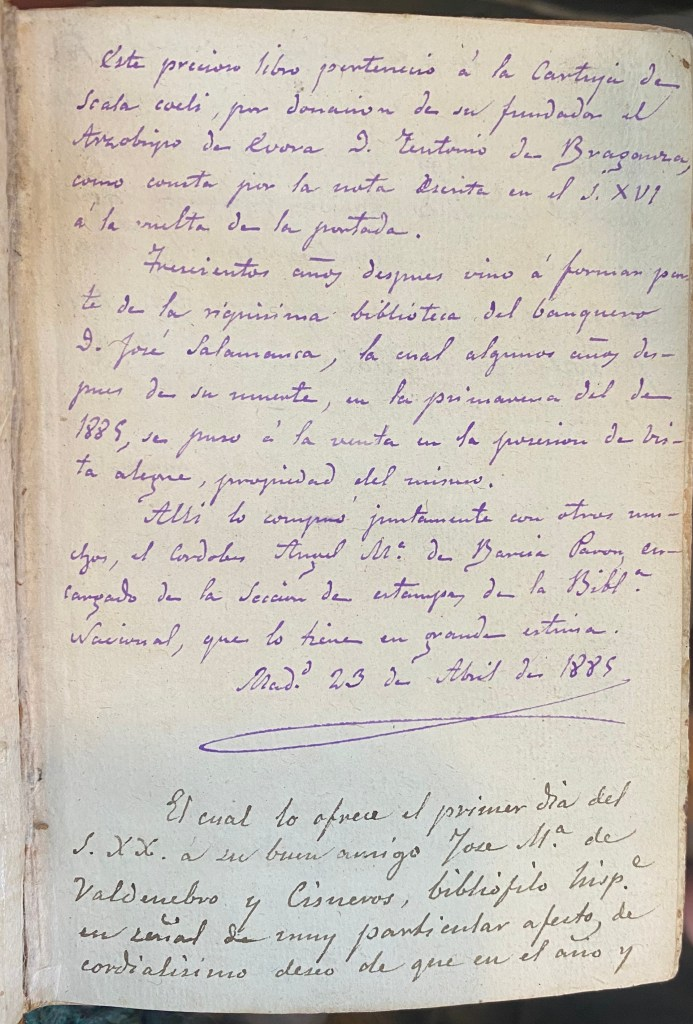 Este precioso libro perteneció á la Cartuja de
Scala coeli, por donacion de su fundador el
Arzobispo de Evora D. Teutonio de Braganza,
como consta por la nota escrita en el S. XVI
á la vuelta de la portada.
Trescientos años despues vino á formar par-
te de la riquisima biblioteca del banquero
D. José Salamanca, la cual algunos años des-
pues de su muerte, en la primavera del de
1885, se puso á la venta en la posesion de Vis-
ta alegre, propiedad del mismo.
Alli lo compró juntamente con otros mu-
chos, el cordobes Angel Mª. de Barcia Pavon, en-
cargado de la Seccion de estampas de la Bibl.ª
Nacional, que lo tiene en grande estima.
Mad.d 23 de Abril de 1885
El cual lo ofrece el primer dia del
S. XX. á su buen amigo Jose M.ª de
Valdenebro y Cisneros, bibliófilo hisp.e
en señal de muy particular afecto, de
cordialisimo deseo de que en el año y